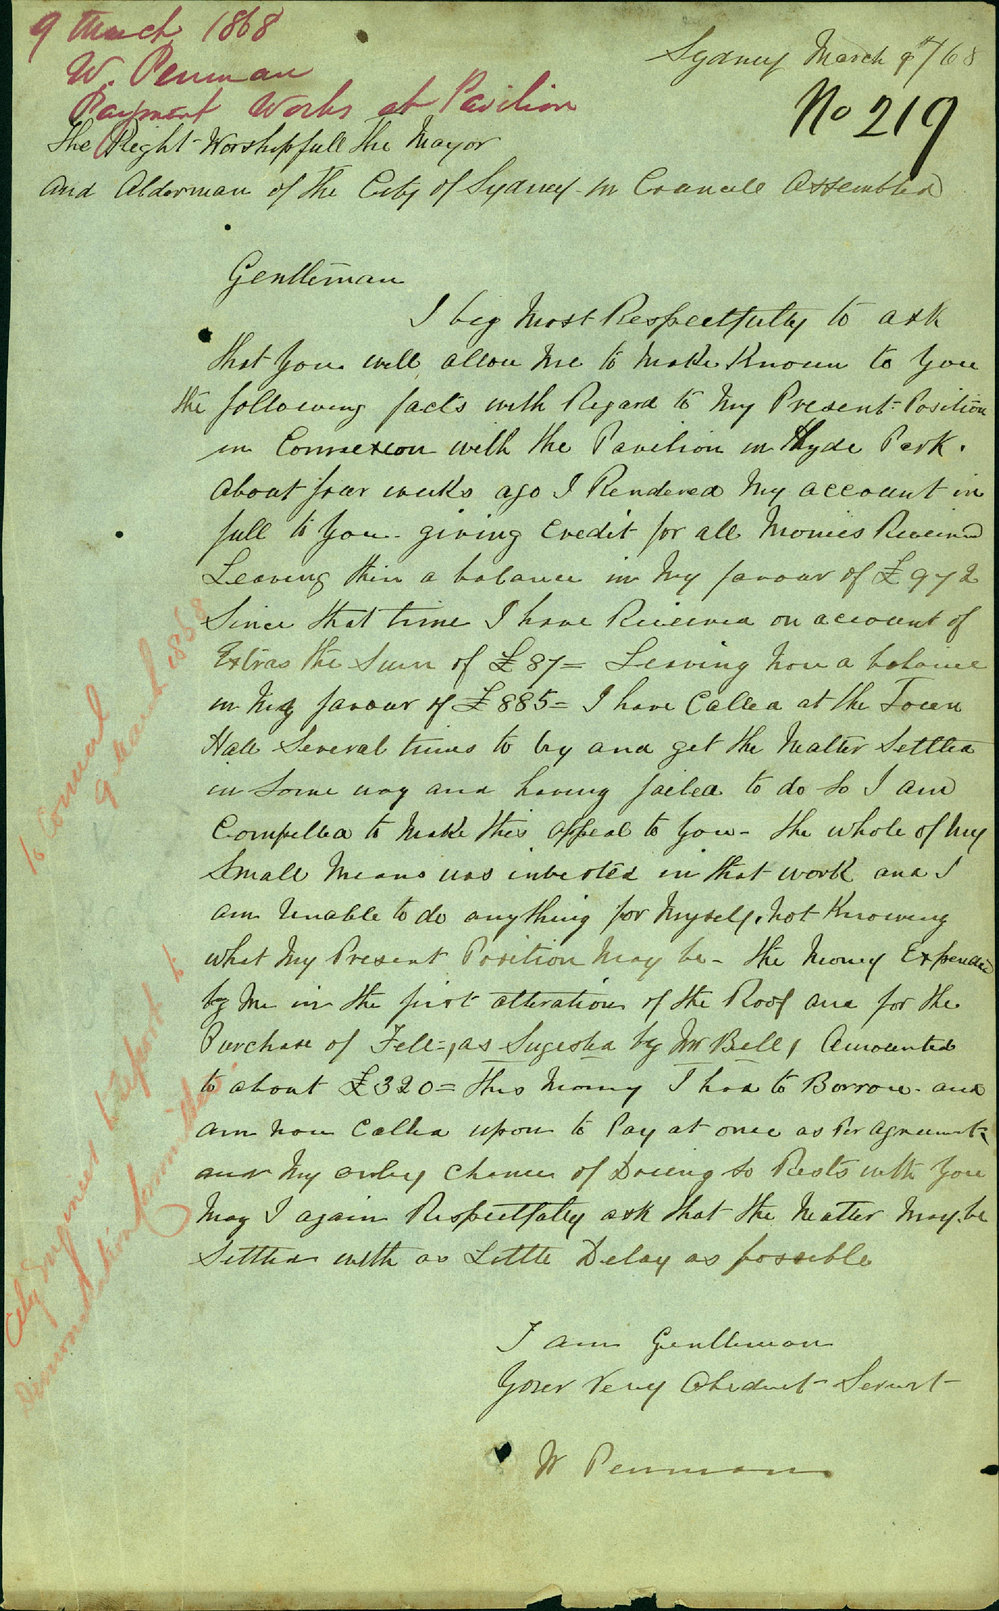 9 March 1868
W. Penman
Payment Works at Pavilion
Sydney March 9th/68
No 219
The Right Worshipfull the Mayor
and Alderman of the City of Sydney in Councell Assembled
Gentleman
I beg Most Respectfully to ask
that you will allow Me to Make Known to You
the following facts with Regard to My Present Position
in Connexion with the Pavilion in Hyde Park.
About four weeks ago I Rendered My account in
full to You giving Credit for all Monies Received
Leaving then a balance in My favour of £972
Since that time I have Received on account of
Extras the Sum of £87= Leaving Now a balance
in My favour of £885= I have Called at the Town
Hall Several times to try and get the Matter Settled
in Some way and having failed to do So I am
Compelled to Make this appeal to You - the whole of My
Small Means was invested in that work and I
am Unable to do anything for Myself, Not Knowing
what My Present Position May be - the Money Expended
by Me in the first alteration of the Roof and for the
Purchase of Felt, as Sugested by Mr Bell, Amounted
to about £320= This Money I had to Borrow and
am now Called upon to Pay at once as Per Agreement
and My only Chance of Doeing So Rests with You
May I again Respectfully ask that the Matter May be
Settled with as Little Delay as possible
I am Gentleman
Your Very Obedient Servant
W Penman
To Council
9 March 1868
City Engineer to report to
Demonstration Committee.